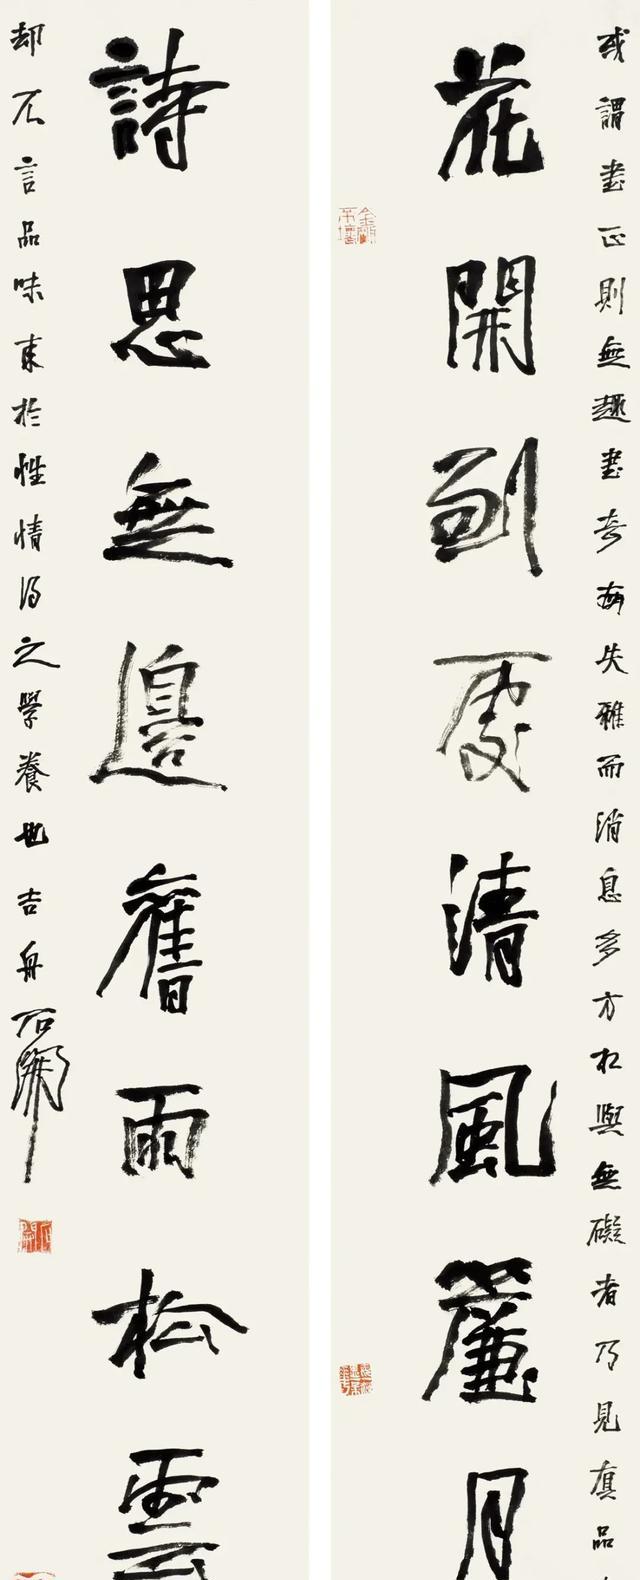 或謂書正則無趣書奇有失雅而消息多方松與無礙者乃見真品
花開到處清風簾月
詩思無邊舊雨松雲
却不言品味東於性情得之學養也吉舟石開